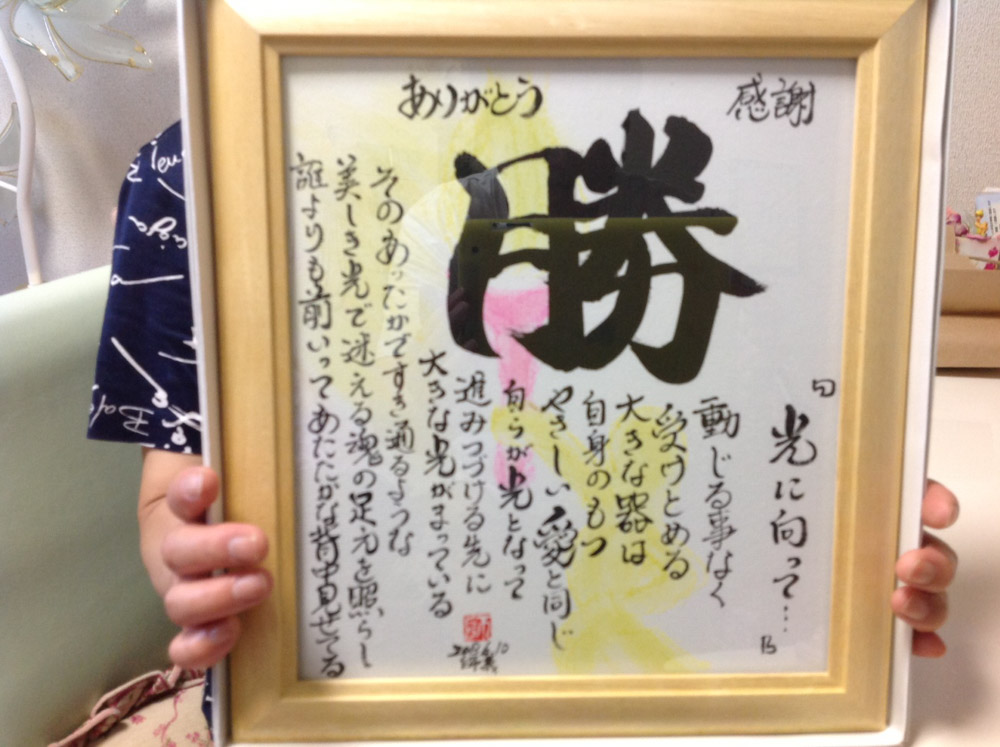 感謝
ありがとう
勝
「光に向って…」
動じる事なく
受けとめる
大きな器は
自身のもつ
やさしい愛と同じ
自らが光となって
進みつづける先に
大きな光がまっている
そのあったかですき通るような
美しき光で迷える魂の足元を照らし
誰よりも前いってあたたかな背中見せてる